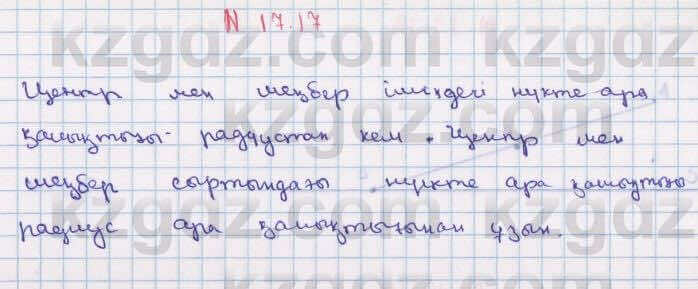 N 17.17
Центр мен шеңбер ішіндегі нүкте ара
қашықтығы- радиустан кем. Центр мен
шеңбер сыртындағы нүкте ара қашықтығы
радиус ара қашықтығынан ұзын.
kzgdz.com kzgdz
kzgdz.com
kzgdz.com kzgdz
kzgdz.com